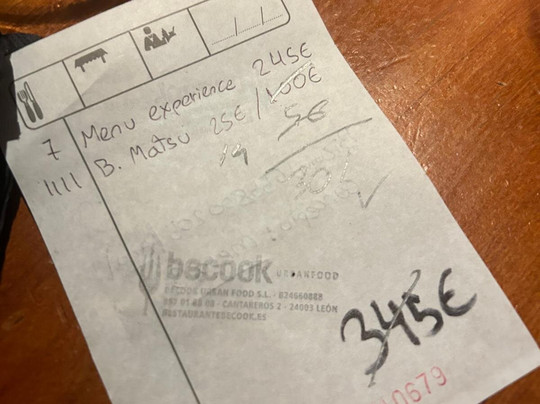 7 Menu experience 245€
IIII B. Matsu 25€ / 100€
5€
bécook URBANFOOD
BÉCOOK URBAN FOOD S.L. - B24660888
987 01 68 08 - CANTAREROS 2 - 24003 LEÓN
RESTAURANTEBECOOK.ES
345€
10679